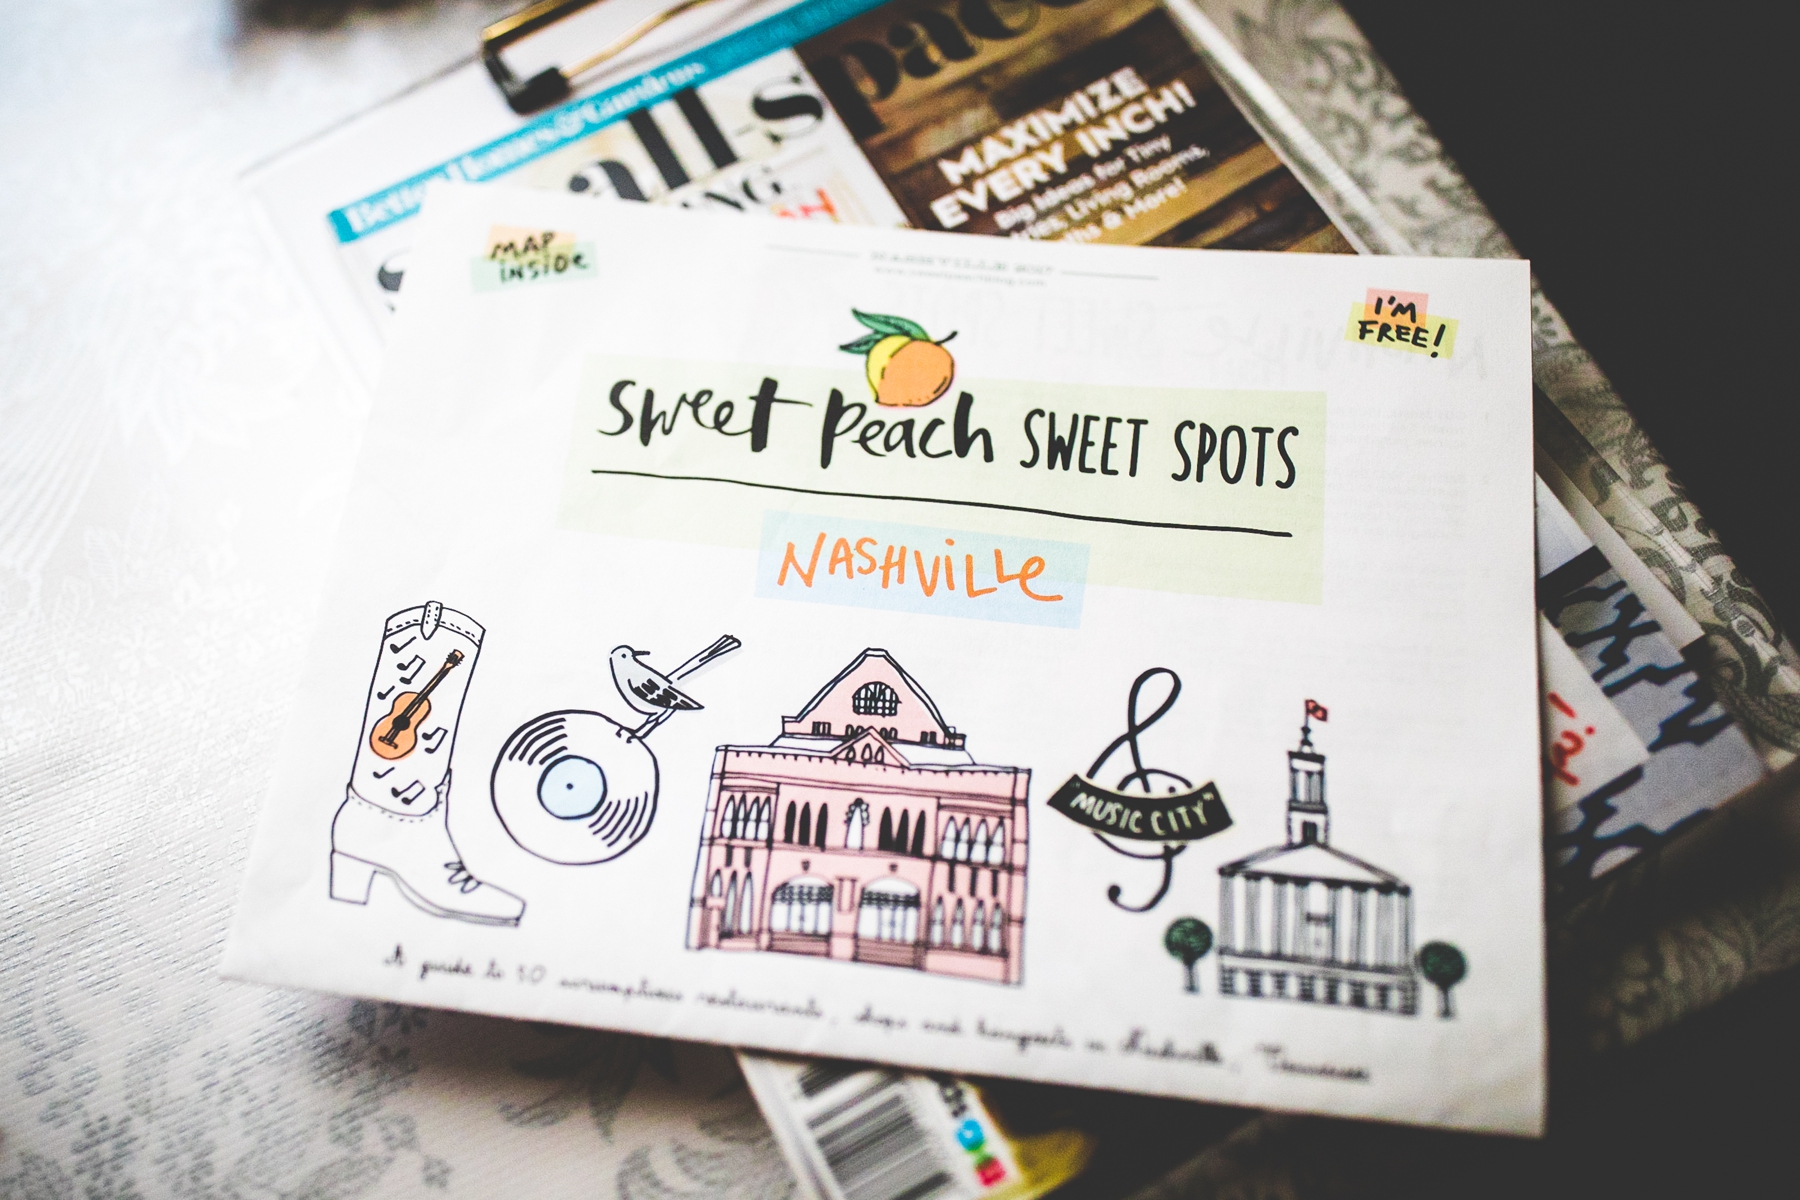 Better Homes & Gardens
all-space
MAXIMIZE
EVERY INCH!
Big Ideas for Tiny
Living Rooms,
& More!
MAP
INSIDE
NASHVILLE 2017
I'M
FREE!
Sweet Peach SWEET SPOTS
NASHVILLE
"MUSIC CITY"
A guide to 50 scrumptious restaurants, shops and hangouts in Nashville, Tennessee